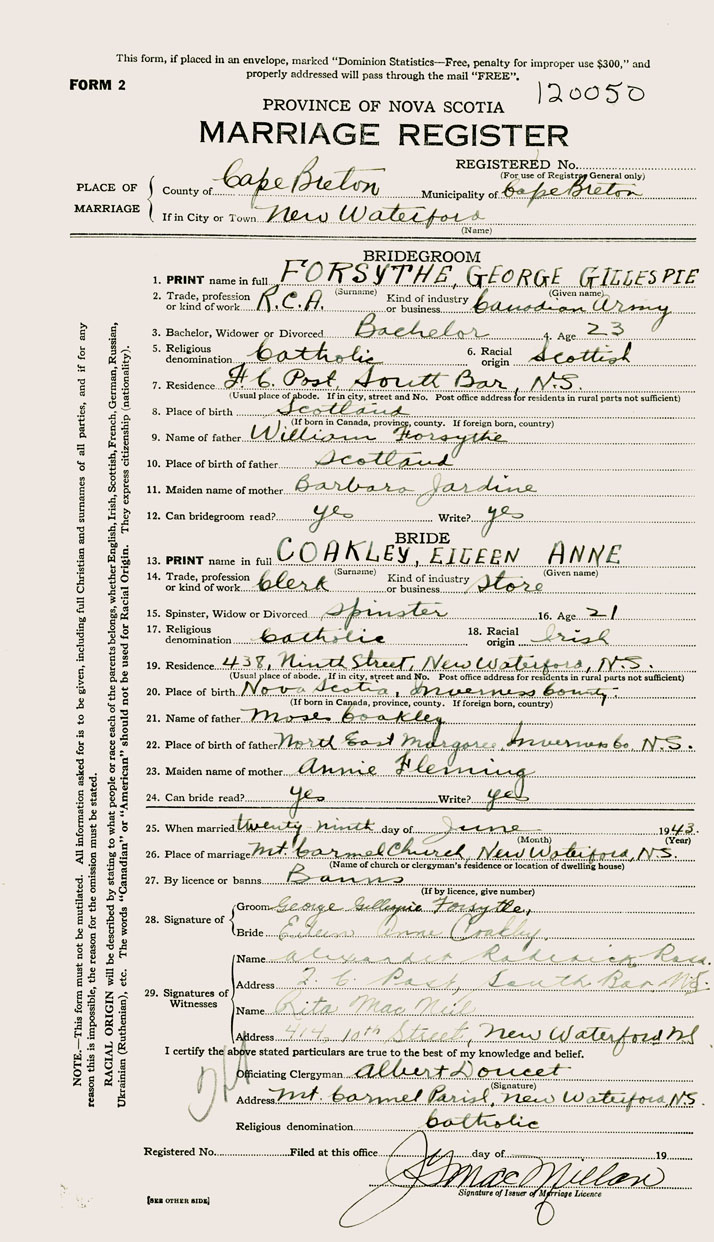 This form, if placed in an envelope, marked "Dominion Statistics—Free, penalty for improper use $300," and
properly addressed will pass through the mail "FREE".
FORM 2
120050
PROVINCE OF NOVA SCOTIA
MARRIAGE REGISTER
REGISTERED No.
(For use of Registrar General only)
PLACE OF MARRIAGE
County of Cape Breton Municipality of Cape Breton
If in City or Town New Waterford
(Name)
BRIDEGROOM
1. PRINT name in full FORSYTHE, GEORGE GILLESPIE
(Surname) (Given name)
2. Trade, profession or kind of work R.C.A. Kind of industry or business Canadian Army
3. Bachelor, Widower or Divorced Bachelor 4. Age 23
5. Religious denomination Catholic 6. Racial origin Scottish
7. Residence F.C. Post, South Bar, N.S.
(Usual place of abode. If in city, street and No. Post office address for residents in rural parts not sufficient)
8. Place of birth Scotland
(If born in Canada, province, county. If foreign born, country)
9. Name of father William Forsythe
10. Place of birth of father Scotland
11. Maiden name of mother Barbara Jardine
12. Can bridegroom read? yes Write? yes
BRIDE
13. PRINT name in full COAKLEY, EILEEN ANNE
(Surname) (Given name)
14. Trade, profession or kind of work Clerk Kind of industry or business Store
15. Spinster, Widow or Divorced Spinster 16. Age 21
17. Religious denomination Catholic 18. Racial origin Irish
19. Residence 438, Ninth Street, New Waterford, N.S.
(Usual place of abode. If in city, street and No. Post office address for residents in rural parts not sufficient)
20. Place of birth Nova Scotia, Inverness County.
(If born in Canada, province, county. If foreign born, country)
21. Name of father Moses Coakley
22. Place of birth of father North East Margaree, Inverness Co, N.S.
23. Maiden name of mother Annie Fleming
24. Can bride read? yes Write? yes
25. When married twenty ninth day of June 1943.
(Month) (Year)
26. Place of marriage Mt. Carmel Church, New Waterford, N.S.
(Name of church or clergyman's residence or location of dwelling house)
27. By licence or banns Banns
(If by licence, give number)
28. Signature of
Groom George Gillespie Forsythe,
Bride Eileen Anne Coakley.
29. Signatures of Witnesses
Name Alexander Roderick Ross.
Address F. C. Post, South Bar, N.S.
Name Rita Mac Neil
Address 414, 10th Street, New Waterford NS
I certify the above stated particulars are true to the best of my knowledge and belief.
Officiating Clergyman Albert Doucet
(Signature)
Address Mt. Carmel Parish, New Waterford, N.S.
Religious denomination Catholic
Registered No. Filed at this office day of 19
MacMillan
Signature of Issuer of Marriage Licence
[SEE OTHER SIDE]
NOTE.—This form must not be mutilated. All information asked for is to be given, including full Christian and surnames of all parties, and if for any
reason this is impossible, the reason for the omission must be stated.
RACIAL ORIGIN will be described by stating to what people or race each of the parents belongs, whether English, Irish, Scottish, French, German, Russian,
Ukrainian (Ruthenian), etc. The words "Canadian" or "American" should not be used for Racial Origin. They express citizenship (nationality).